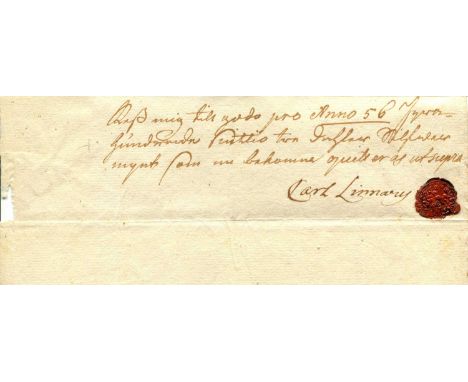 mig till godo pro Anno 56 Fyra-
hundrade Siuttio två Daler Silfwer
mynt som nu bekommne quitteras ut supra
Carl Linnæus